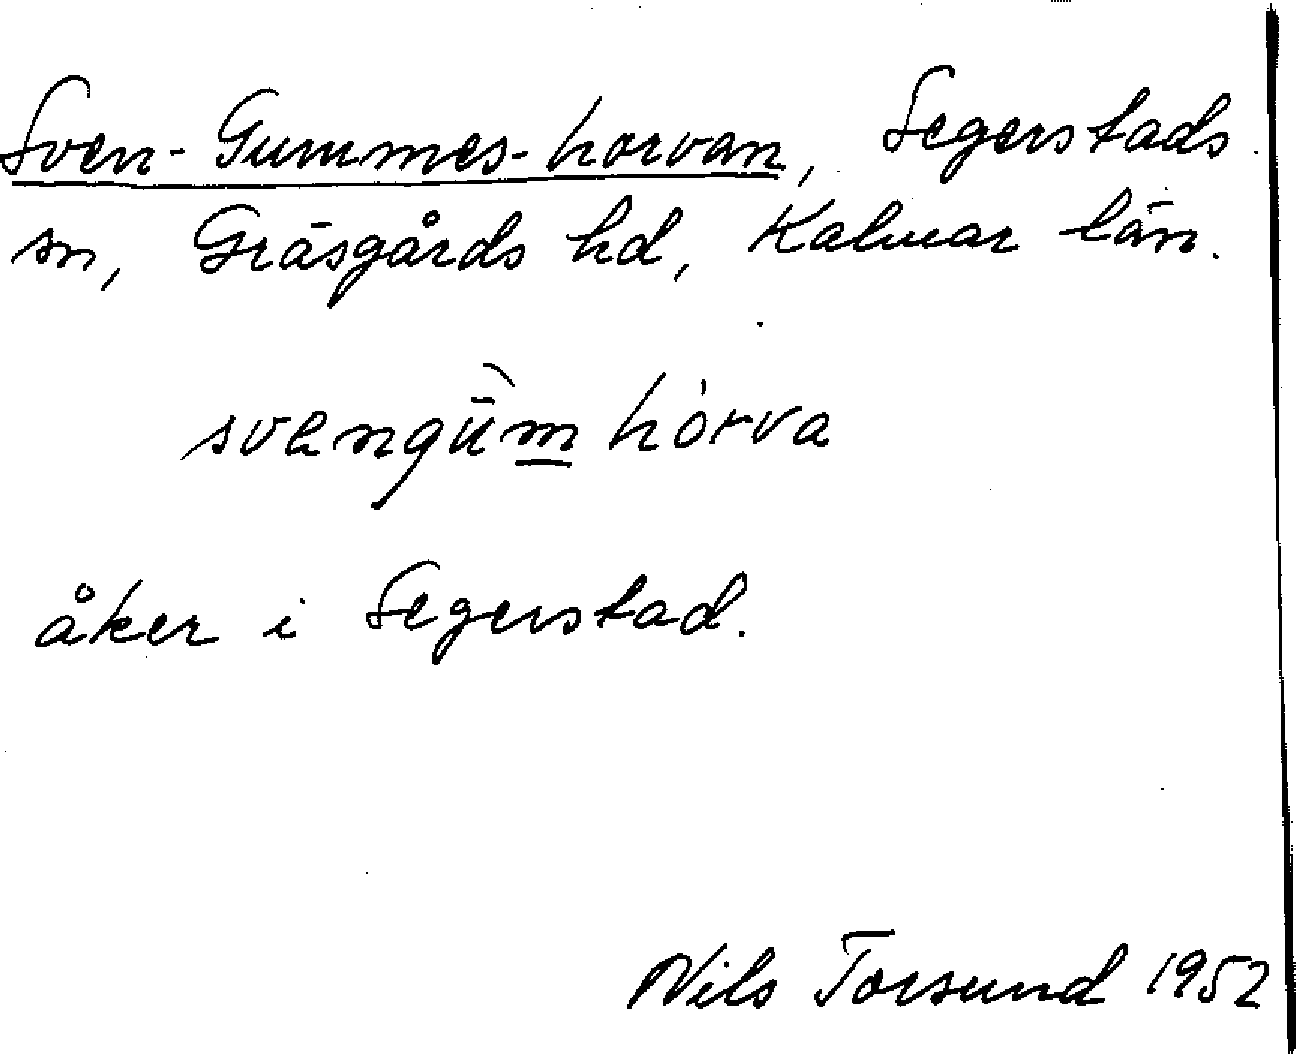 Sven-Gummes-horvan, Segerstads
sn, Gräsgårds hd, Kalmar län.
svengüm hórva
åker i Segerstad.
Nils Torsund 1952